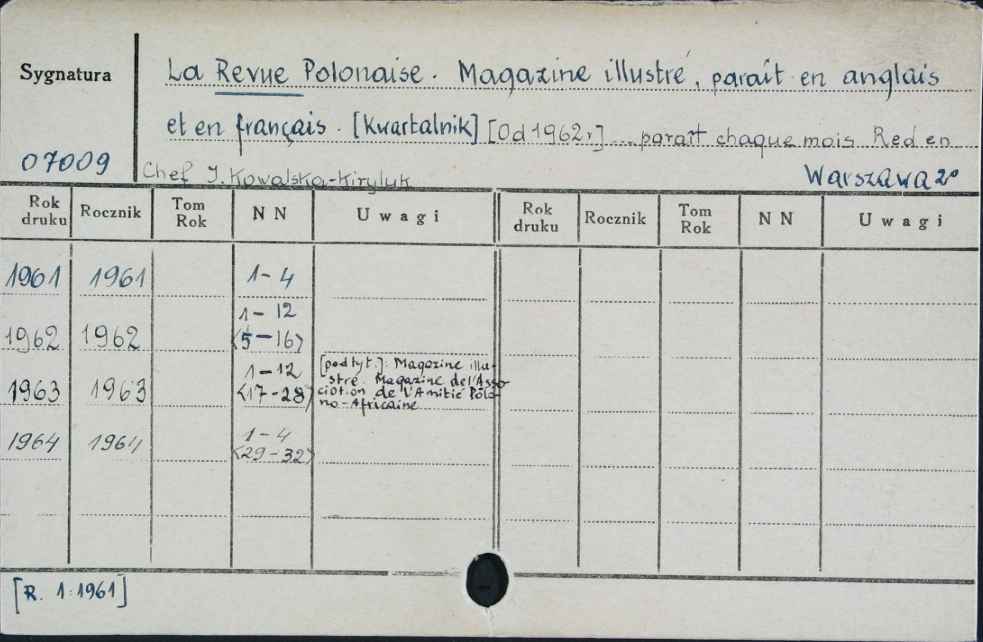 Sygnatura
La Revue Polonaise. Magazine illustré, paraît en anglais
et en français. [Kwartalnik] [Od 1962r.] ... paraît chaque mois Red en
07009 Chef J. Kowalska-Kiryluk Warszawa 2°
Rok druku Rocznik Tom Rok NN Uwagi Rok druku Rocznik Tom Rok NN Uwagi
1961 1961 1-4
1962 1962 1-12
<5-16>
1963 1963 1-12
<17-28>
[podtyt.]: Magazine illu-
stré. Magazine de l'Asso
ciation de l'Amitié Polo-
no-Africaine
1964 1964 1-4
<29-32>
[R. 1:1961]